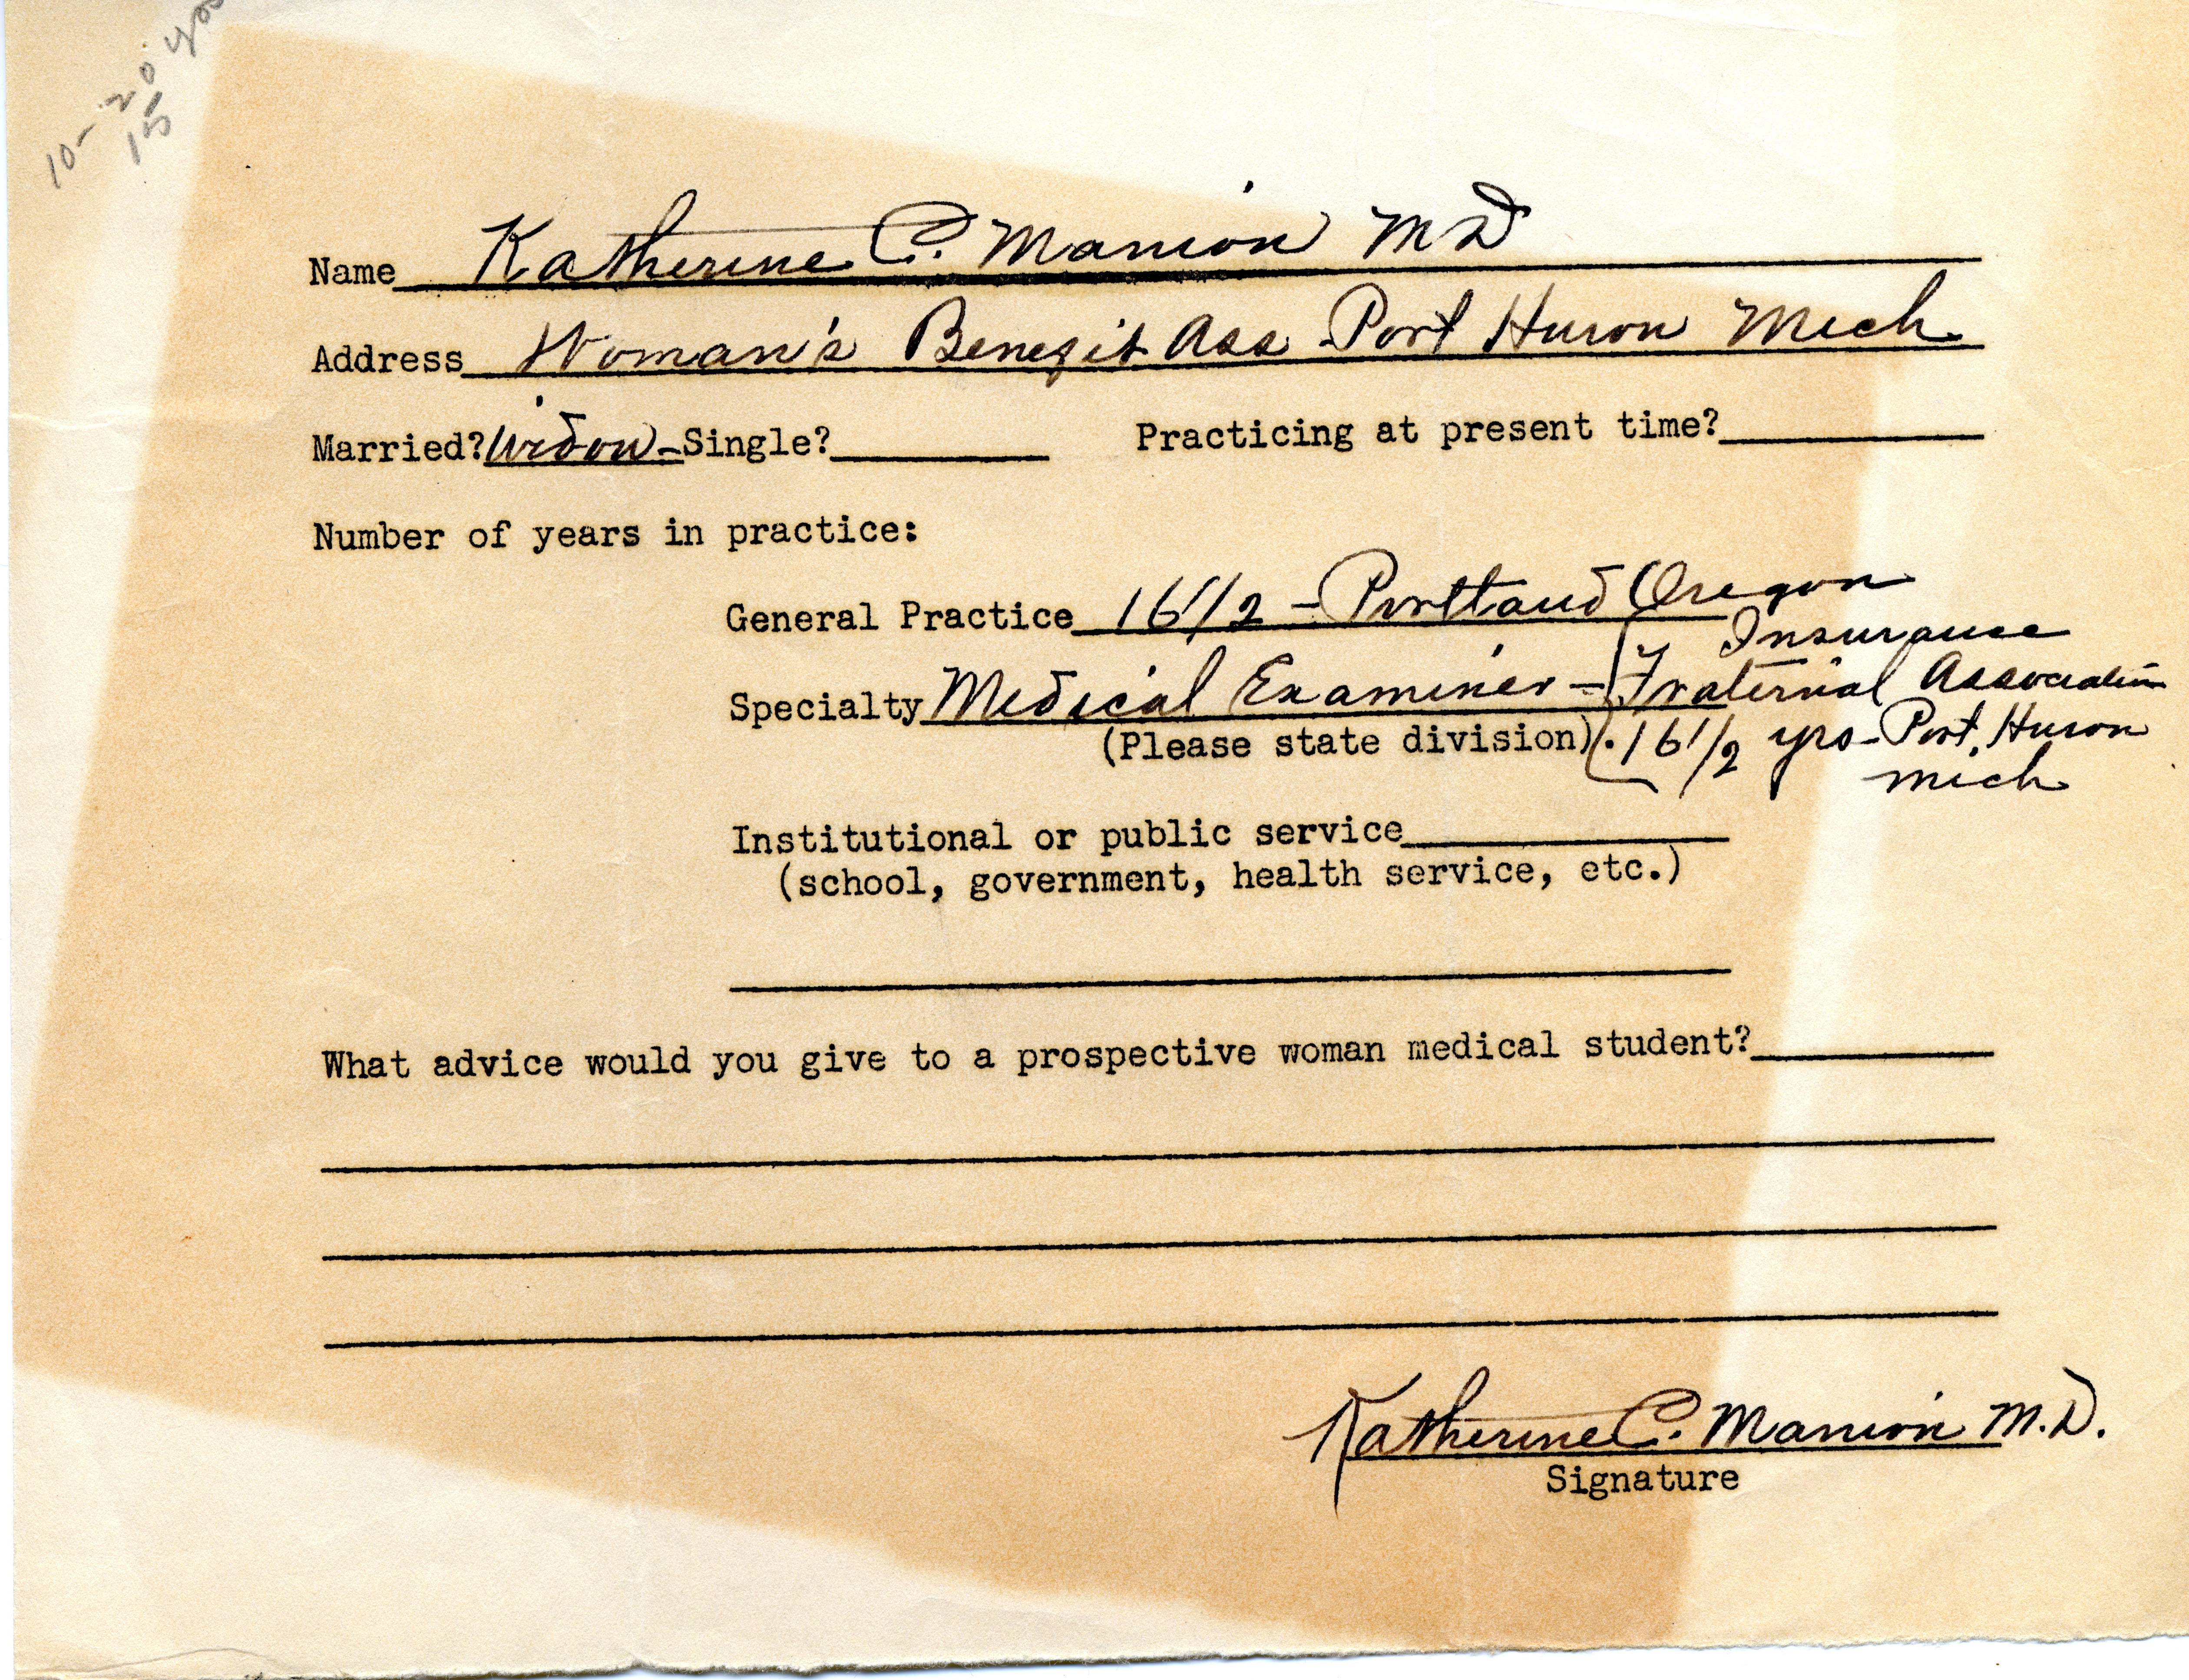 10-20 yrs
15
Name Katherine C. Manion MD
Address Woman's Benefit Ass Port Huron Mich
Married? Widow - Single? Practicing at present time?
Number of years in practice:
General Practice 16 1/2 - Portland Oregon
Insurance
Specialty Medical Examiner - Fraternal Association
(Please state division). 16 1/2 yrs - Port Huron
Mich
Institutional or public service
(school, government, health service, etc.)
What advice would you give to a prospective woman medical student?
Katherine C. Manion M.D.
Signature